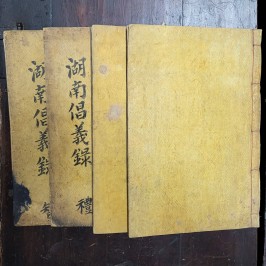 湖南倡義錄
禮
湖南倡義錄
智